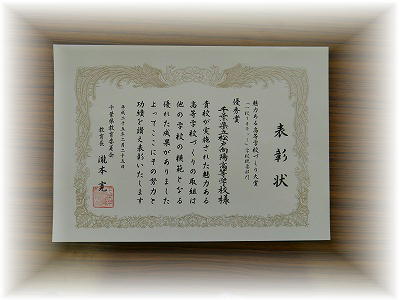 表彰状
魅力ある高等学校づくり大賞
優秀賞
千葉県立松戸向陽高等学校様
貴校が実施された魅力ある
高等学校づくりの取組は
他の学校の模範となる
優れた成果がありました
よってここにその努力と
功績を讃え表彰いたします
平成二十五年二月二十五日
千葉県教育委員会
教育長 瀧本寛